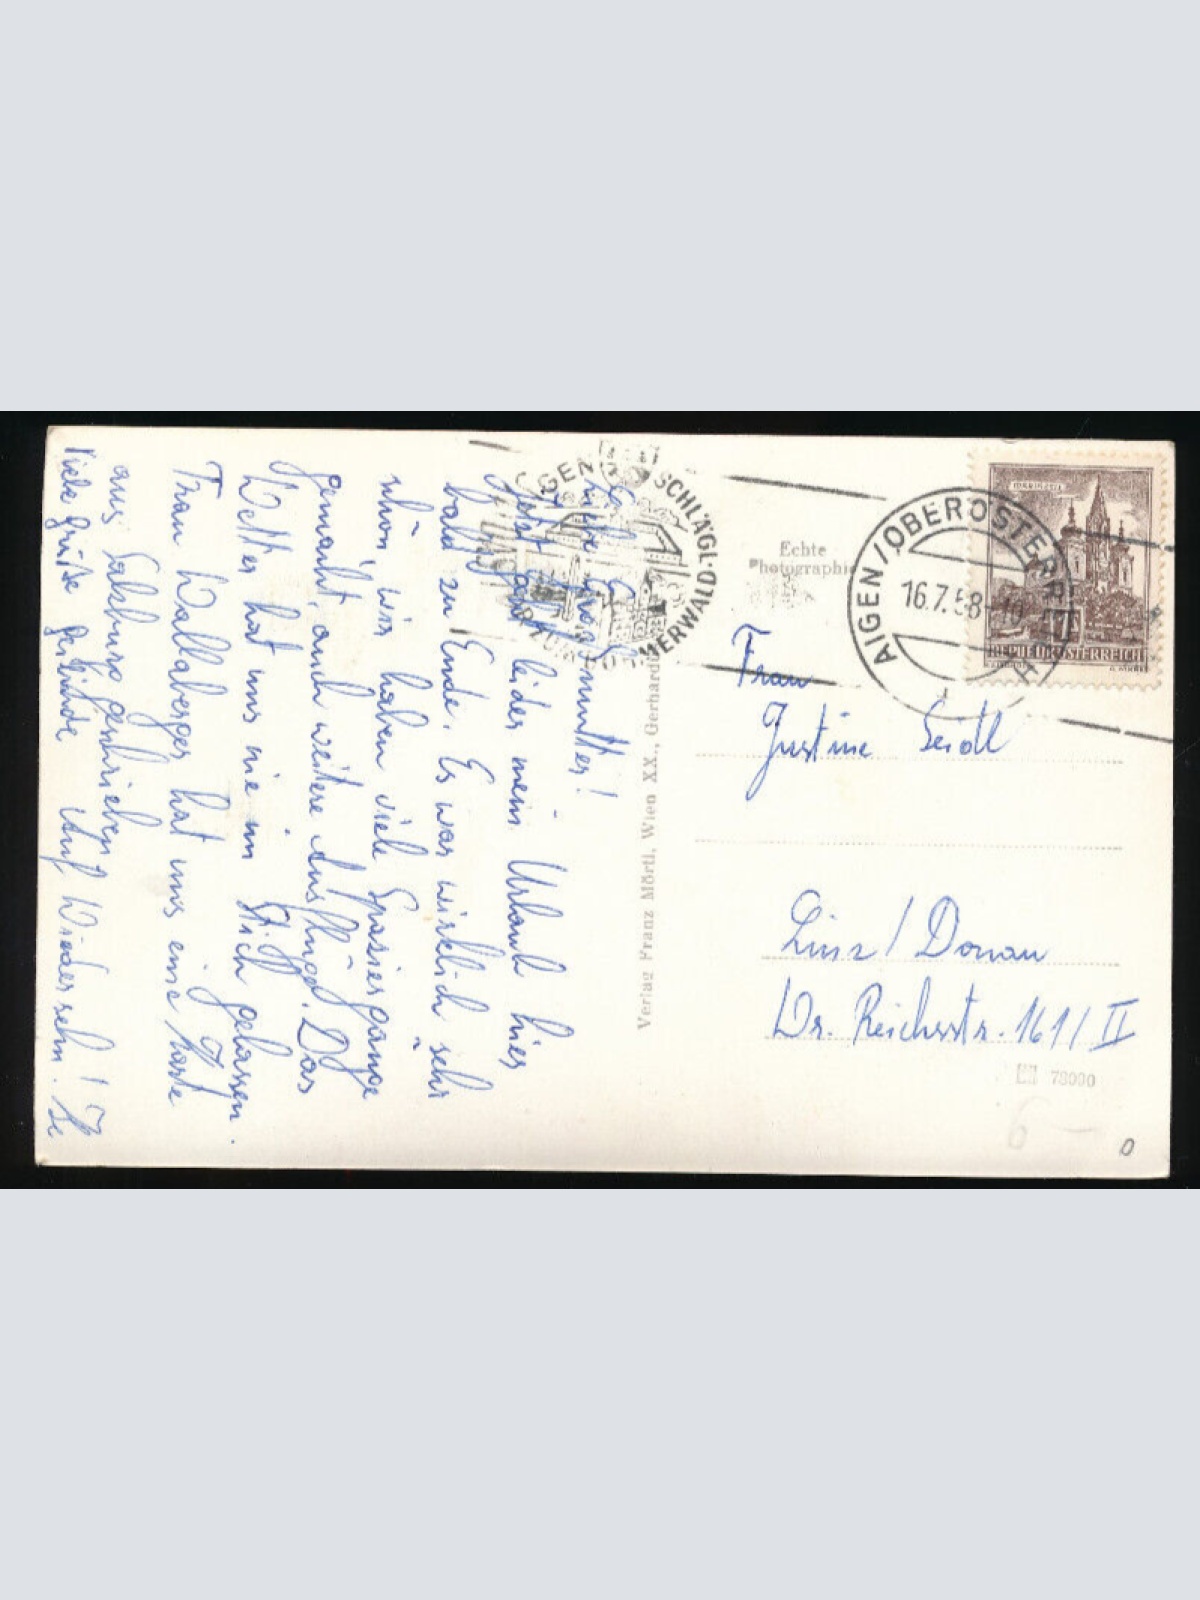 Liebe Großmutter!
Jetzt geht leider mein Urlaub hier
bald zu Ende. Es war wirklich sehr
schön, wir haben viele Spaziergänge
gemacht, auch weitere Ausflüge. Das
Wetter hat uns nie im Stich gelassen.
Frau Wallaberger hat uns eine Karte
aus Salzburg geschrieben
Viele Grüße Gerlinde Auf Wiedersehn!
Verlag Franz Mörtl, Wien XX., Gerhardu
AIGEN SCHLÄGL·O
ZUM BÖHMERWALD
Echte
Photographie
AIGEN/OBERÖSTERREICH
16.7.58-10
MARIAZELL
REPUBLIK ÖSTERREICH
Frau
Justine Seidl
Linz/Donau
Wr. Reichsstr. 161/II
78000
6 —
0